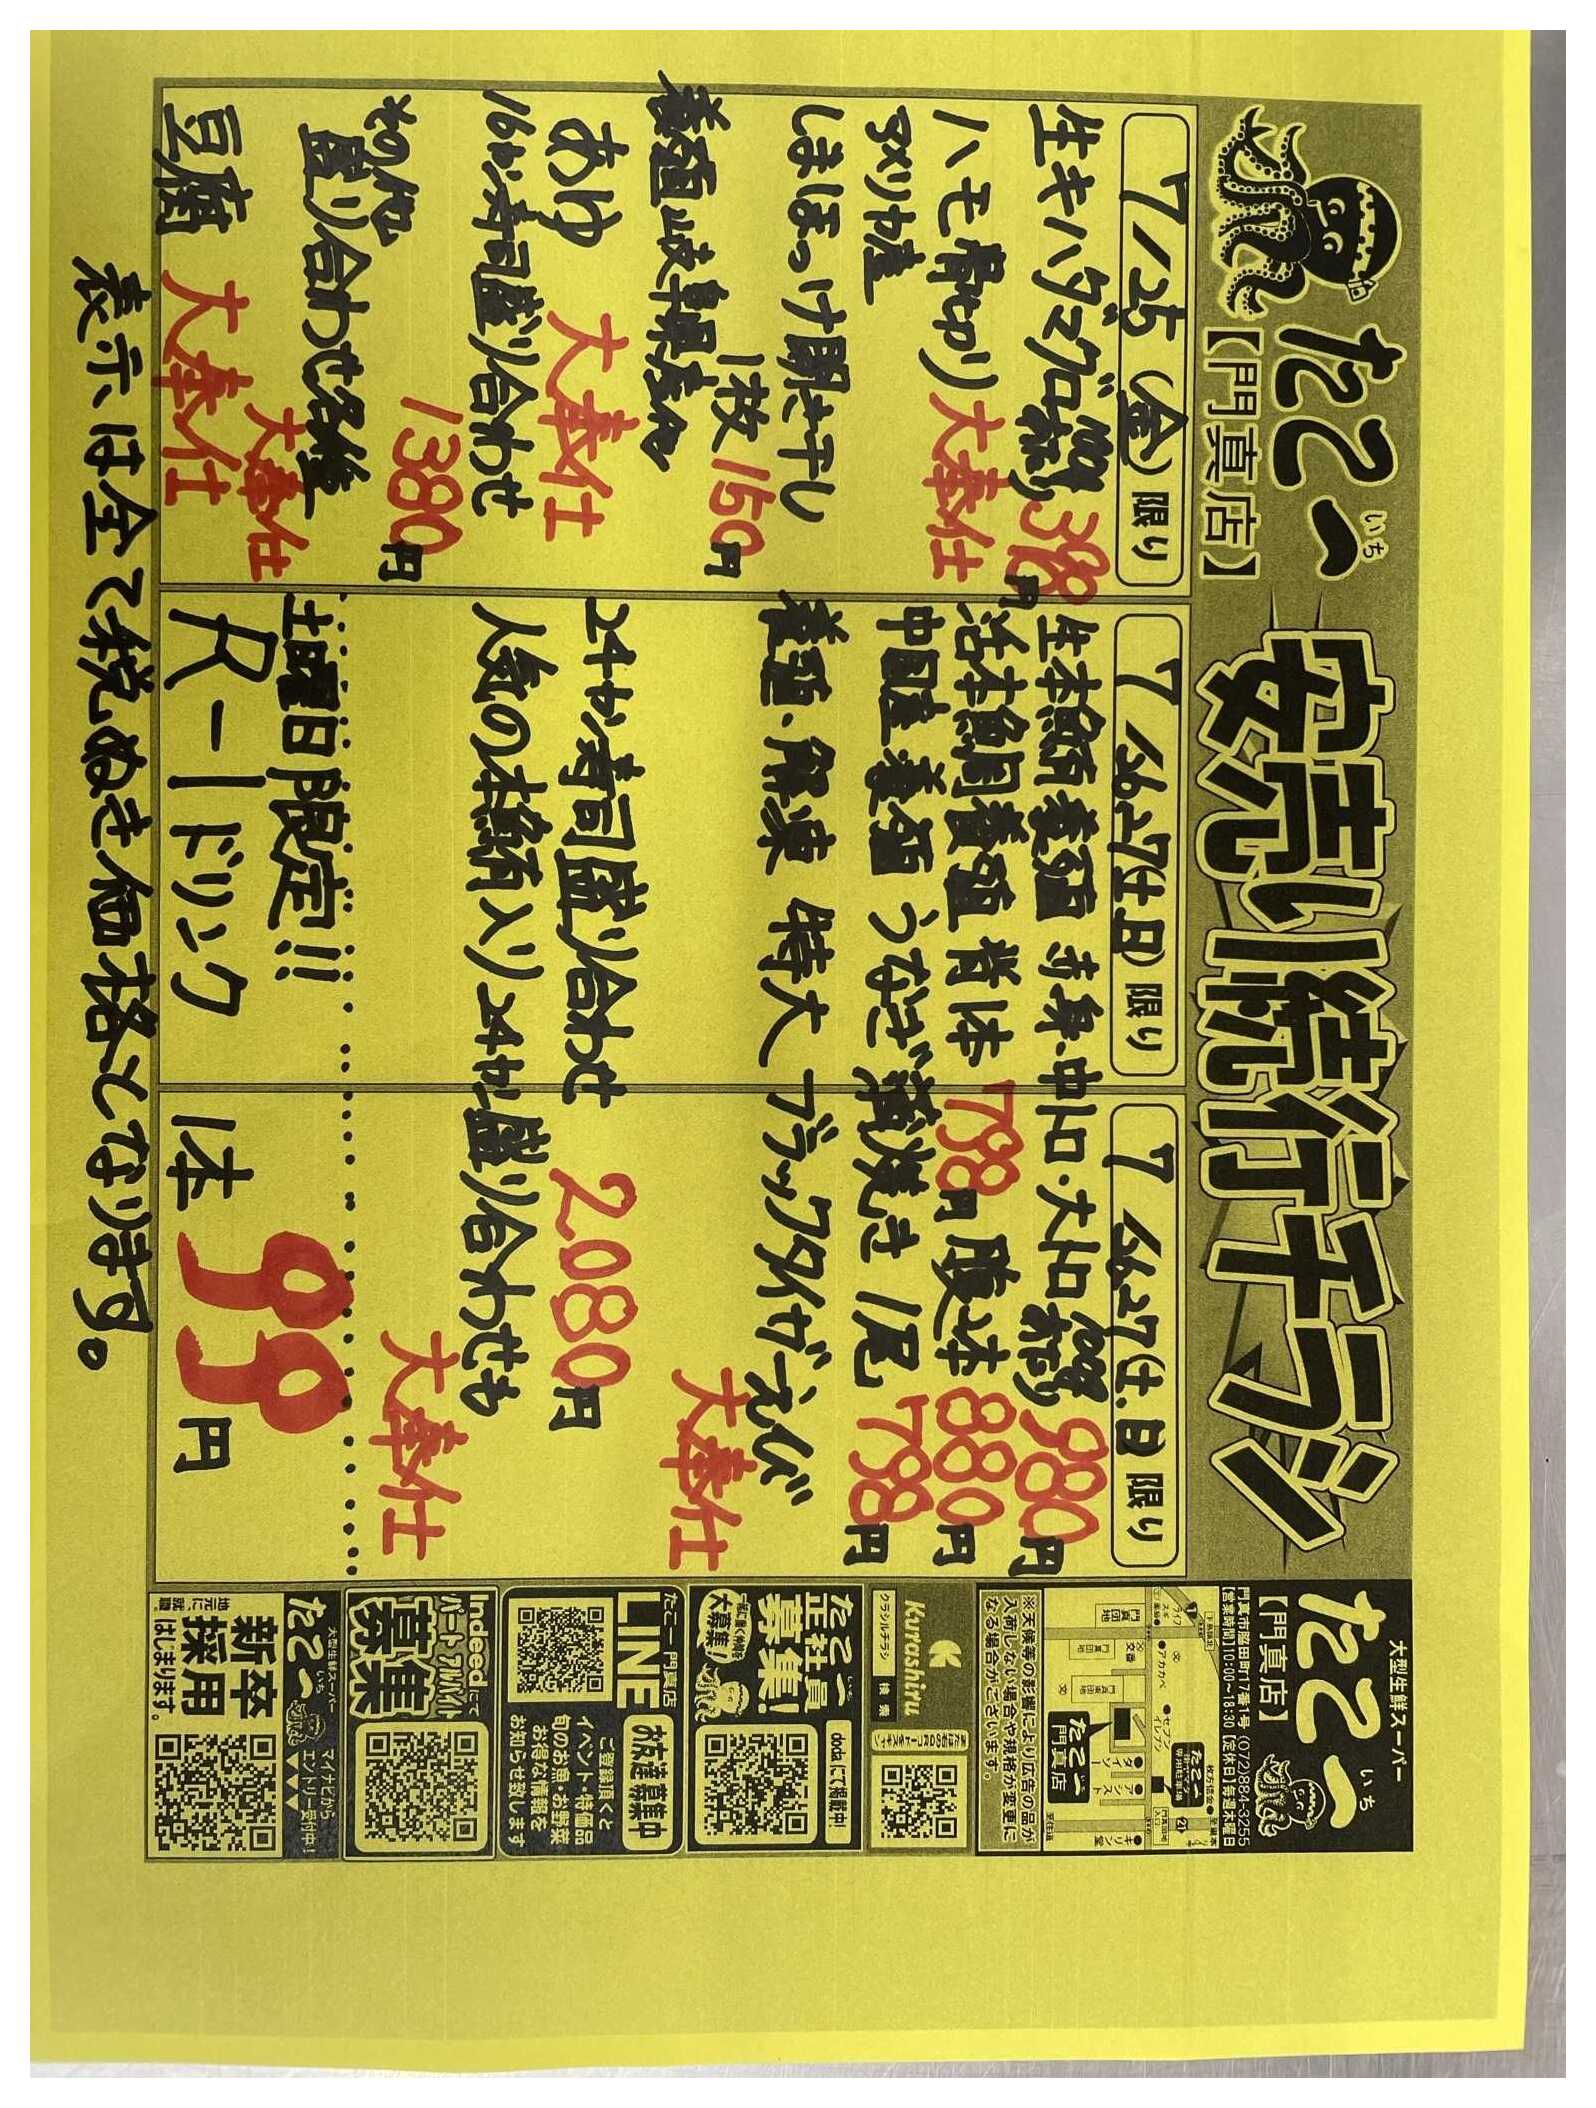 たこ一
いち
【門真店】
安売り続行チラシ
7/25(金)限り
生キハダマグロ 100g(税抜) 398円
ハモ骨切り 大奉仕
アメリカ産
しまほっけ開き干し
1枚 150円
養殖 岐阜県産
あゆ 大奉仕
16カン寿司盛り合わせ
1380円
その他
盛り合わせ各種
大奉仕
豆腐 大奉仕
7/26.27(土.日)限り
7/26.27(土.日)限り
生本鮪 養殖 赤身・中トロ・大トロ 100g(税抜) 980円
活本鯛 養殖 背体 798円 腹体 880円
中国産 養殖 うなぎ蒲焼き 1尾 798円
養殖・解凍 特大 ブラックタイガーえび
大奉仕
24カン寿司盛り合わせ 2080円
人気の本鮪入り24カン盛り合わせも
大奉仕
土曜日限定!!
R-1ドリンク 1本 99円
表示は全て税ぬき価格となります。
大型生鮮スーパー
たこ一
いち
【門真店】
門真市脇田町17番1号 (072)884-3255
【営業時間】10:00~18:30【定休日】毎週木曜日
たこ一
門真店
※天候等の影響により広告の品が
入荷しない場合や規格が変更に
なる場合がございます。
Kurashiru
クラシルチラシ 検索
または右のQRコードをスキャン
たこ一
正社員
募集!
一緒に働く仲間を
大募集!
dodaにて掲載中!
たこ一 門真店
LINE
お友達募集中
ご登録頂くと
イベント・特価品
旬のお魚・お野菜
お得な情報を
お知らせ致します
Indeedにて
パート・アルバイト
募集
大型生鮮スーパー
たこ一
いち
マイナビから
エントリー受付中!
地元に、就職。
新卒
採用
はじまります。